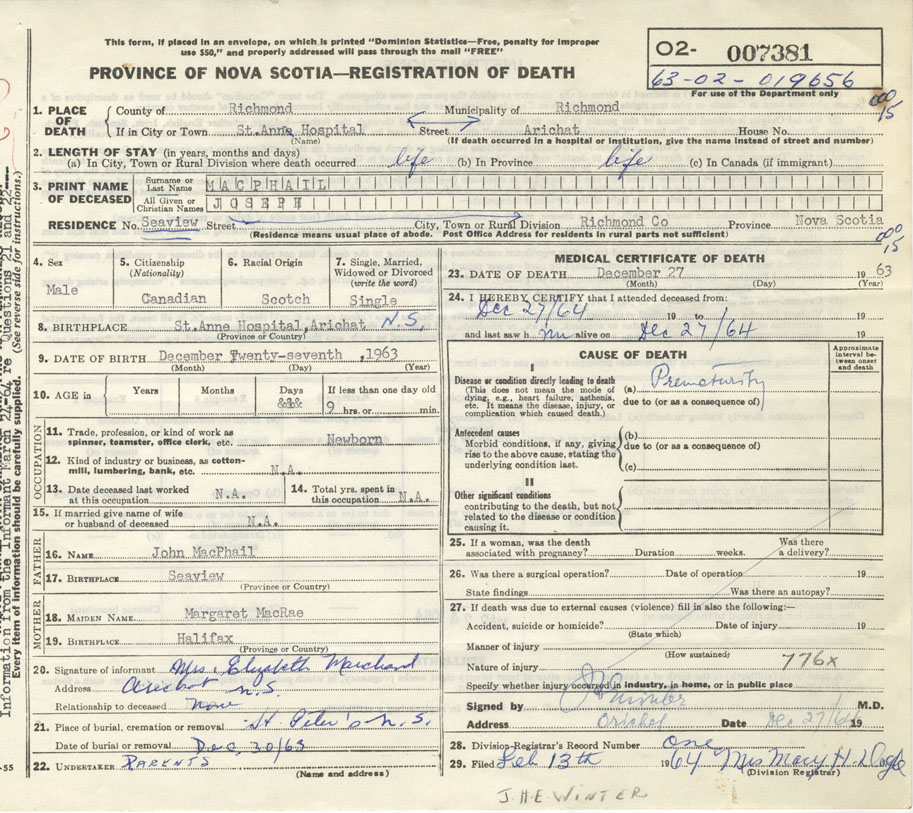 This form, if placed in an envelope, on which is printed "Dominion Statistics—Free, penalty for improper
use $50," and properly addressed will pass through the mail "FREE"
PROVINCE OF NOVA SCOTIA—REGISTRATION OF DEATH
02- 007381
63-02-019656
For use of the Department only
1. PLACE OF DEATH
County of Richmond Municipality of Richmond
If in City or Town St.Anne Hospital Street Arichat House No.
(Name) (If death occurred in a hospital or institution, give the name instead of street and number)
2. LENGTH OF STAY (in years, months and days)
(a) In City, Town or Rural Division where death occurred life (b) In Province life (c) In Canada (if immigrant)
3. PRINT NAME OF DECEASED
Surname or Last Name MACPHAIL
All Given or Christian Names JOSEPH
RESIDENCE No. Seaview Street City, Town or Rural Division Richmond Co Province Nova Scotia
(Residence means usual place of abode. Post Office Address for residents in rural parts not sufficient)
4. Sex
Male
5. Citizenship
(Nationality)
Canadian
6. Racial Origin
Scotch
7. Single, Married,
Widowed or Divorced
(write the word)
Single
8. BIRTHPLACE St.Anne Hospital,Arichat N.S.
(Province or Country)
9. DATE OF BIRTH December Twenty-seventh ,1963
(Month) (Day) (Year)
10. AGE in Years Months Days If less than one day old
9 hrs. or min.
OCCUPATION
11. Trade, profession, or kind of work as
spinner, teamster, office clerk, etc. Newborn
12. Kind of industry or business, as cotton-
mill, lumbering, bank, etc. N.A.
13. Date deceased last worked
at this occupation N.A.
14. Total yrs. spent in
this occupation N.A.
15. If married give name of wife
or husband of deceased N.A.
FATHER
16. NAME John MacPhail
17. BIRTHPLACE Seaview
(Province or Country)
MOTHER
18. MAIDEN NAME Margaret MacRae
19. BIRTHPLACE Halifax
(Province or Country)
20. Signature of informant Mrs. Elizabeth Marchand
Address Arichat N.S.
Relationship to deceased None
21. Place of burial, cremation or removal St. Peter's N.S.
Date of burial or removal Dec. 30/63
22. UNDERTAKER PARENTS
(Name and address)
MEDICAL CERTIFICATE OF DEATH
23. DATE OF DEATH December 27 19 63
(Month) (Day) (Year)
24. I HEREBY CERTIFY that I attended deceased from:
Dec 27/64 19 to 19
and last saw h im alive on Dec 27/64 19
CAUSE OF DEATH
Approximate
interval be-
tween onset
and death
I
Disease or condition directly leading to death
(This does not mean the mode of
dying, e.g., heart failure, asthenia,
etc. It means the disease, injury, or
complication which caused death.)
(a) Prematurity
due to (or as a consequence of)
Antecedent causes
Morbid conditions, if any, giving
rise to the above cause, stating the
underlying condition last.
(b)
due to (or as a consequence of)
(c)
II
Other significant conditions
contributing to the death, but not
related to the disease or condition
causing it.
25. If a woman, was the death
associated with pregnancy? Duration weeks. Was there
a delivery?
26. Was there a surgical operation? Date of operation 19
State findings Was there an autopsy?
27. If death was due to external causes (violence) fill in also the following:—
Accident, suicide or homicide? Date of injury 19
(State which)
Manner of injury
(How sustained)
Nature of injury 776x
Specify whether injury occurred in industry, in home, or in public place
Signed by M.D.
Address Arichat Date Dec 27/64 19
28. Division-Registrar's Record Number one
29. Filed Feb 13th 1964 Mrs Mary H. Doyle
(Division Registrar)
J.H.E WINTER
-55
Information from the Informant March 24-64 re Questions 21 and 22---
Every item of information should be carefully supplied. (See reverse side for instructions.)